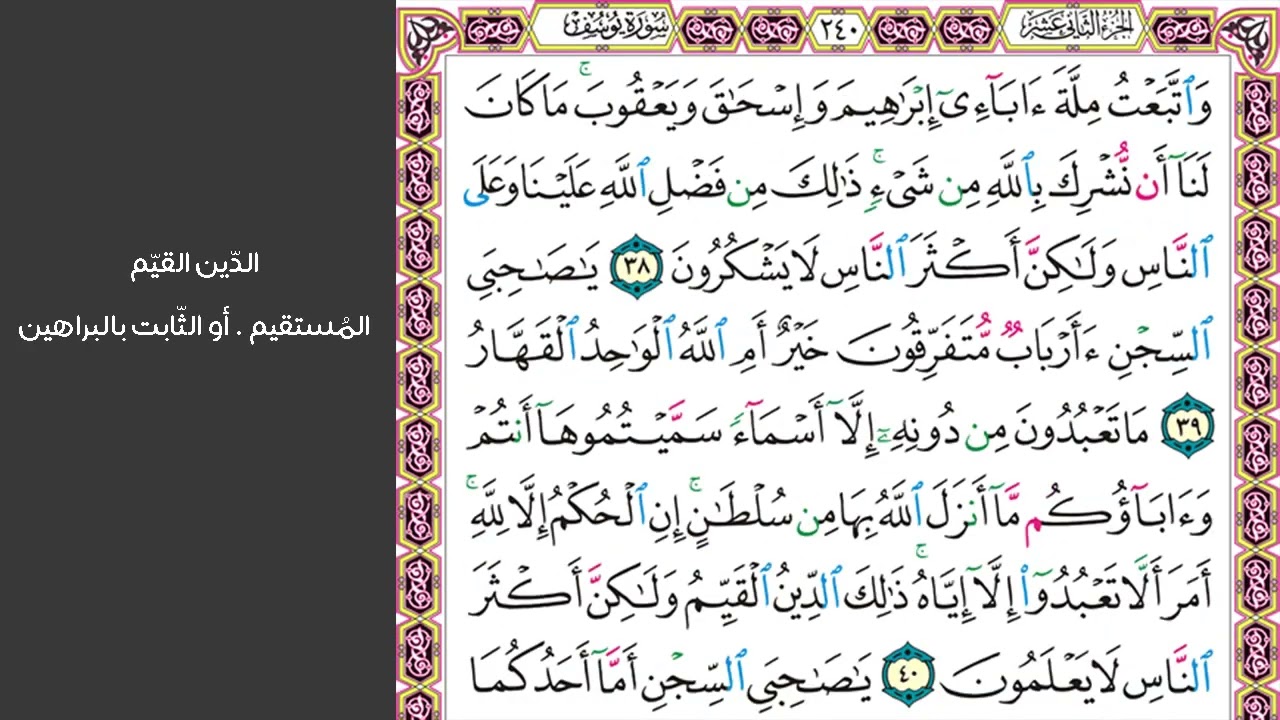 الجزء الثاني عشر
٢٤٠
سورة يوسف
وَٱتَّبَعْتُ مِلَّةَ ءَابَآءِىٓ إِبْرَٰهِيمَ وَإِسْحَٰقَ وَيَعْقُوبَ ۚ مَا كَانَ
لَنَآ أَن نُّشْرِكَ بِٱللَّهِ مِن شَىْءٍ ۚ ذَٰلِكَ مِن فَضْلِ ٱللَّهِ عَلَيْنَا وَعَلَى
ٱلنَّاسِ وَلَٰكِنَّ أَكْثَرَ ٱلنَّاسِ لَا يَشْكُرُونَ ٣٨ يَٰصَٰحِبَىِ
ٱلسِّجْنِ ءَأَرْبَابٌ مُّتَفَرِّقُونَ خَيْرٌ أَمِ ٱللَّهُ ٱلْوَٰحِدُ ٱلْقَهَّارُ
٣٩ مَا تَعْبُدُونَ مِن دُونِهِۦٓ إِلَّآ أَسْمَآءً سَمَّيْتُمُوهَآ أَنتُمْ
وَءَابَآؤُكُم مَّآ أَنزَلَ ٱللَّهُ بِهَا مِن سُلْطَٰنٍ ۚ إِنِ ٱلْحُكْمُ إِلَّا لِلَّهِ ۚ
أَمَرَ أَلَّا تَعْبُدُوٓا۟ إِلَّآ إِيَّاهُ ۚ ذَٰلِكَ ٱلدِّينُ ٱلْقَيِّمُ وَلَٰكِنَّ أَكْثَرَ
ٱلنَّاسِ لَا يَعْلَمُونَ ٤٠ يَٰصَٰحِبَىِ ٱلسِّجْنِ أَمَّآ أَحَدُكُمَا
الدّين القيّم
المُستقيم . أو الثّابت بالبراهين